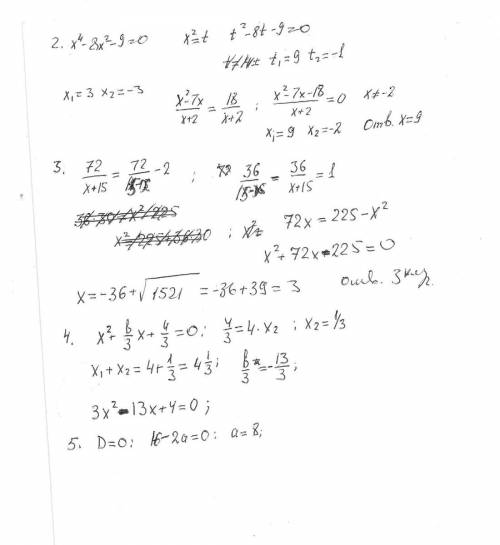 2. x⁴-8x²-9=0   x²=t   t²-8t-9=0
t₁=9 t₂=-1
x₁=3 x₂=-3   x²-7x/x+2 = 18/x+2 ;   x²-7x-18/x+2 =0   x≠-2
x₁=9 x₂=-2   Отв. x=9
3. 72/x+15 = 72/15-x -2 ;   36/15-x = 36/x+15 = 1
72x=225-x²
x²+72x-225=0
x=-36+√1521 =-36+39=3   отв. 3
4. x²+ b/3 x+ 4/3=0; 4/3=4·x₂ ; x₂=1/3
x₁+x₂=4+1/3=4 1/3; b/3=-13/3;
3x²-13x+4=0;
5. D=0; 16-2a=0; a=8;